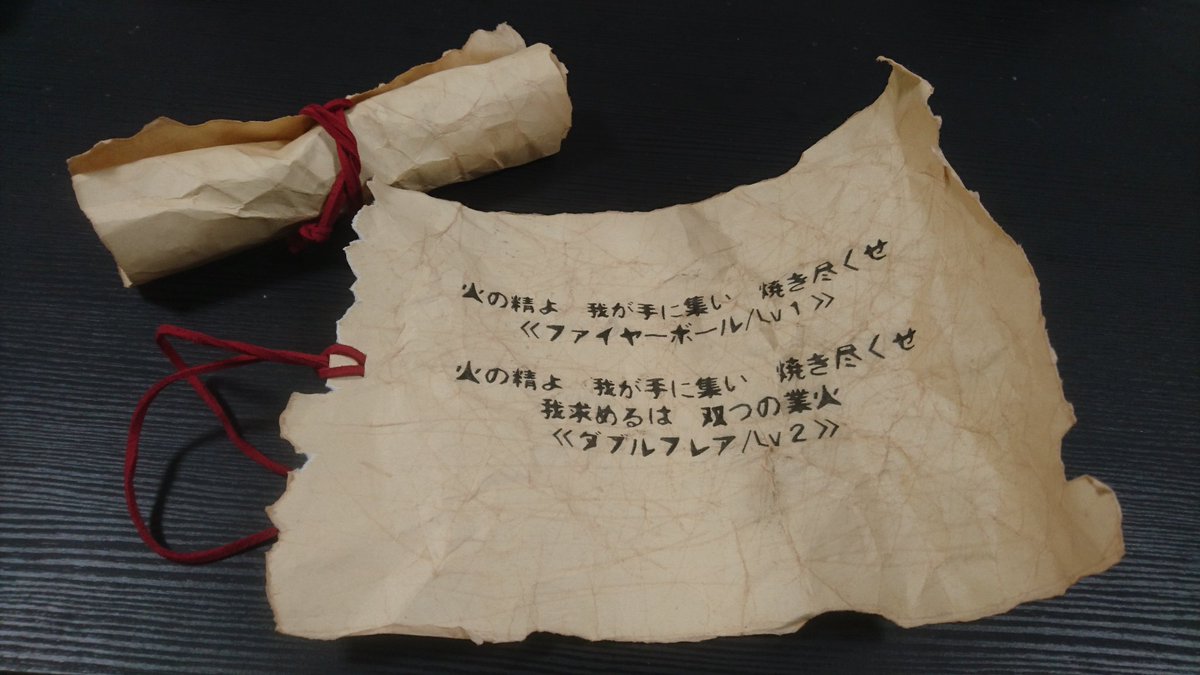 火の精よ 我が手に集い 焼き尽くせ
≪ファイヤーボール/Lv1≫
火の精よ 我が手に集い 焼き尽くせ
我求めるは 双つの業火
≪ダブルフレア/Lv2≫